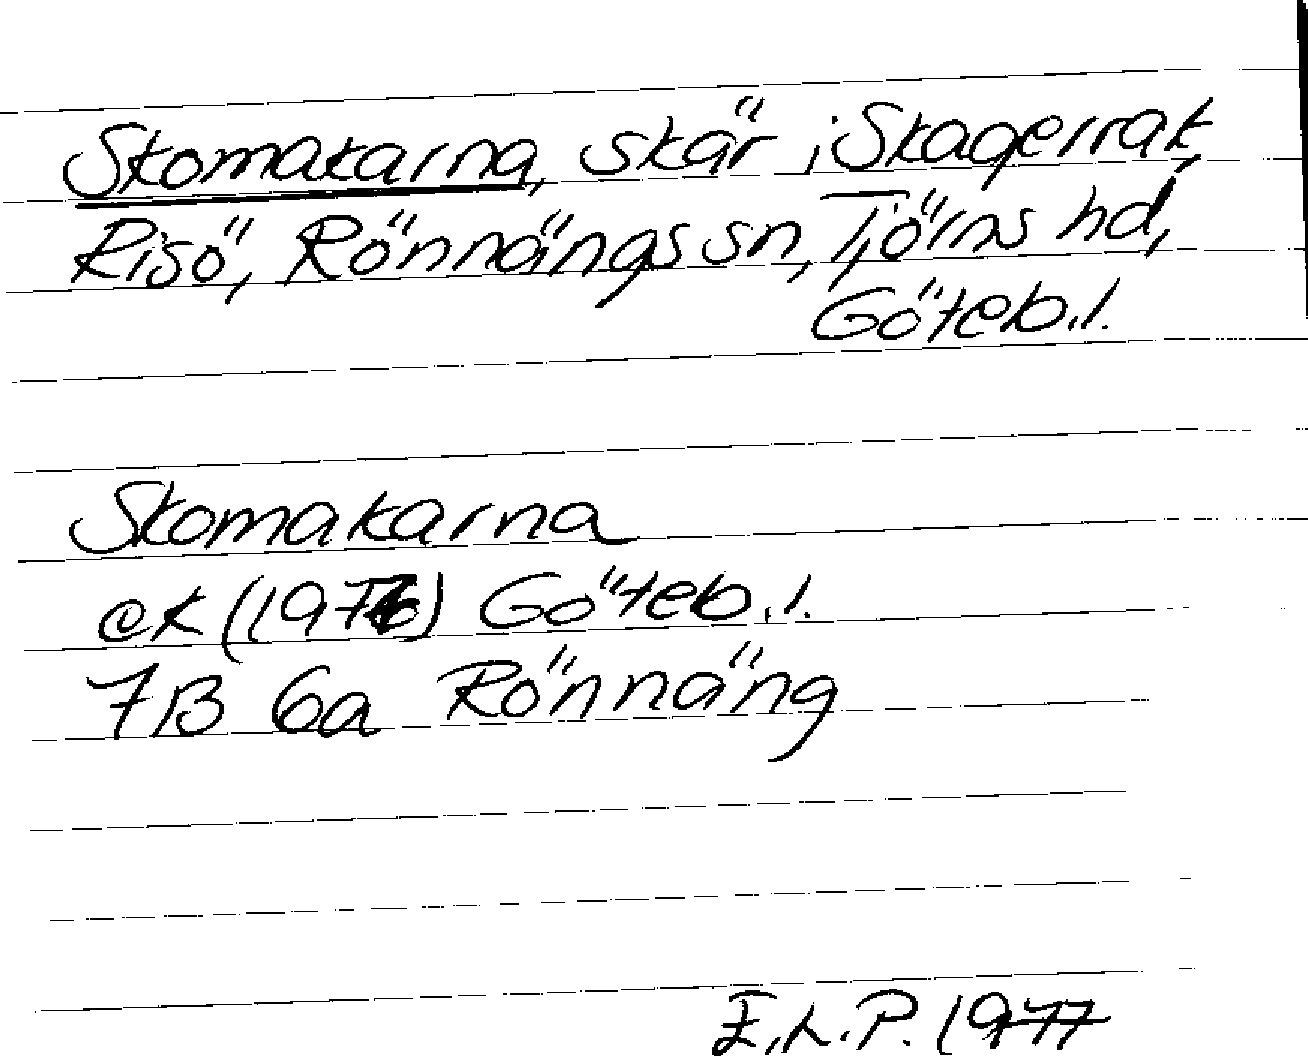 Skomakarna, skär i Skagerrak,
Risö, Rönnängs sn, Tjörns hd,
Göteb.l.
Skomakarna
ek (1976) Göteb.l.
7B 6a Rönnäng
E.L.P. 1977